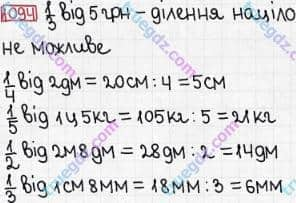 1094 1/3 від 5 грн - ділення націло
не можливе
1/4 від 2дм = 20см : 4 = 5см
1/5 від 1ц 5кг = 105кг : 5 = 21кг
1/2 від 2м 8дм = 28дм : 2 = 14дм
1/3 від 1см 8мм = 18мм : 3 = 6мм